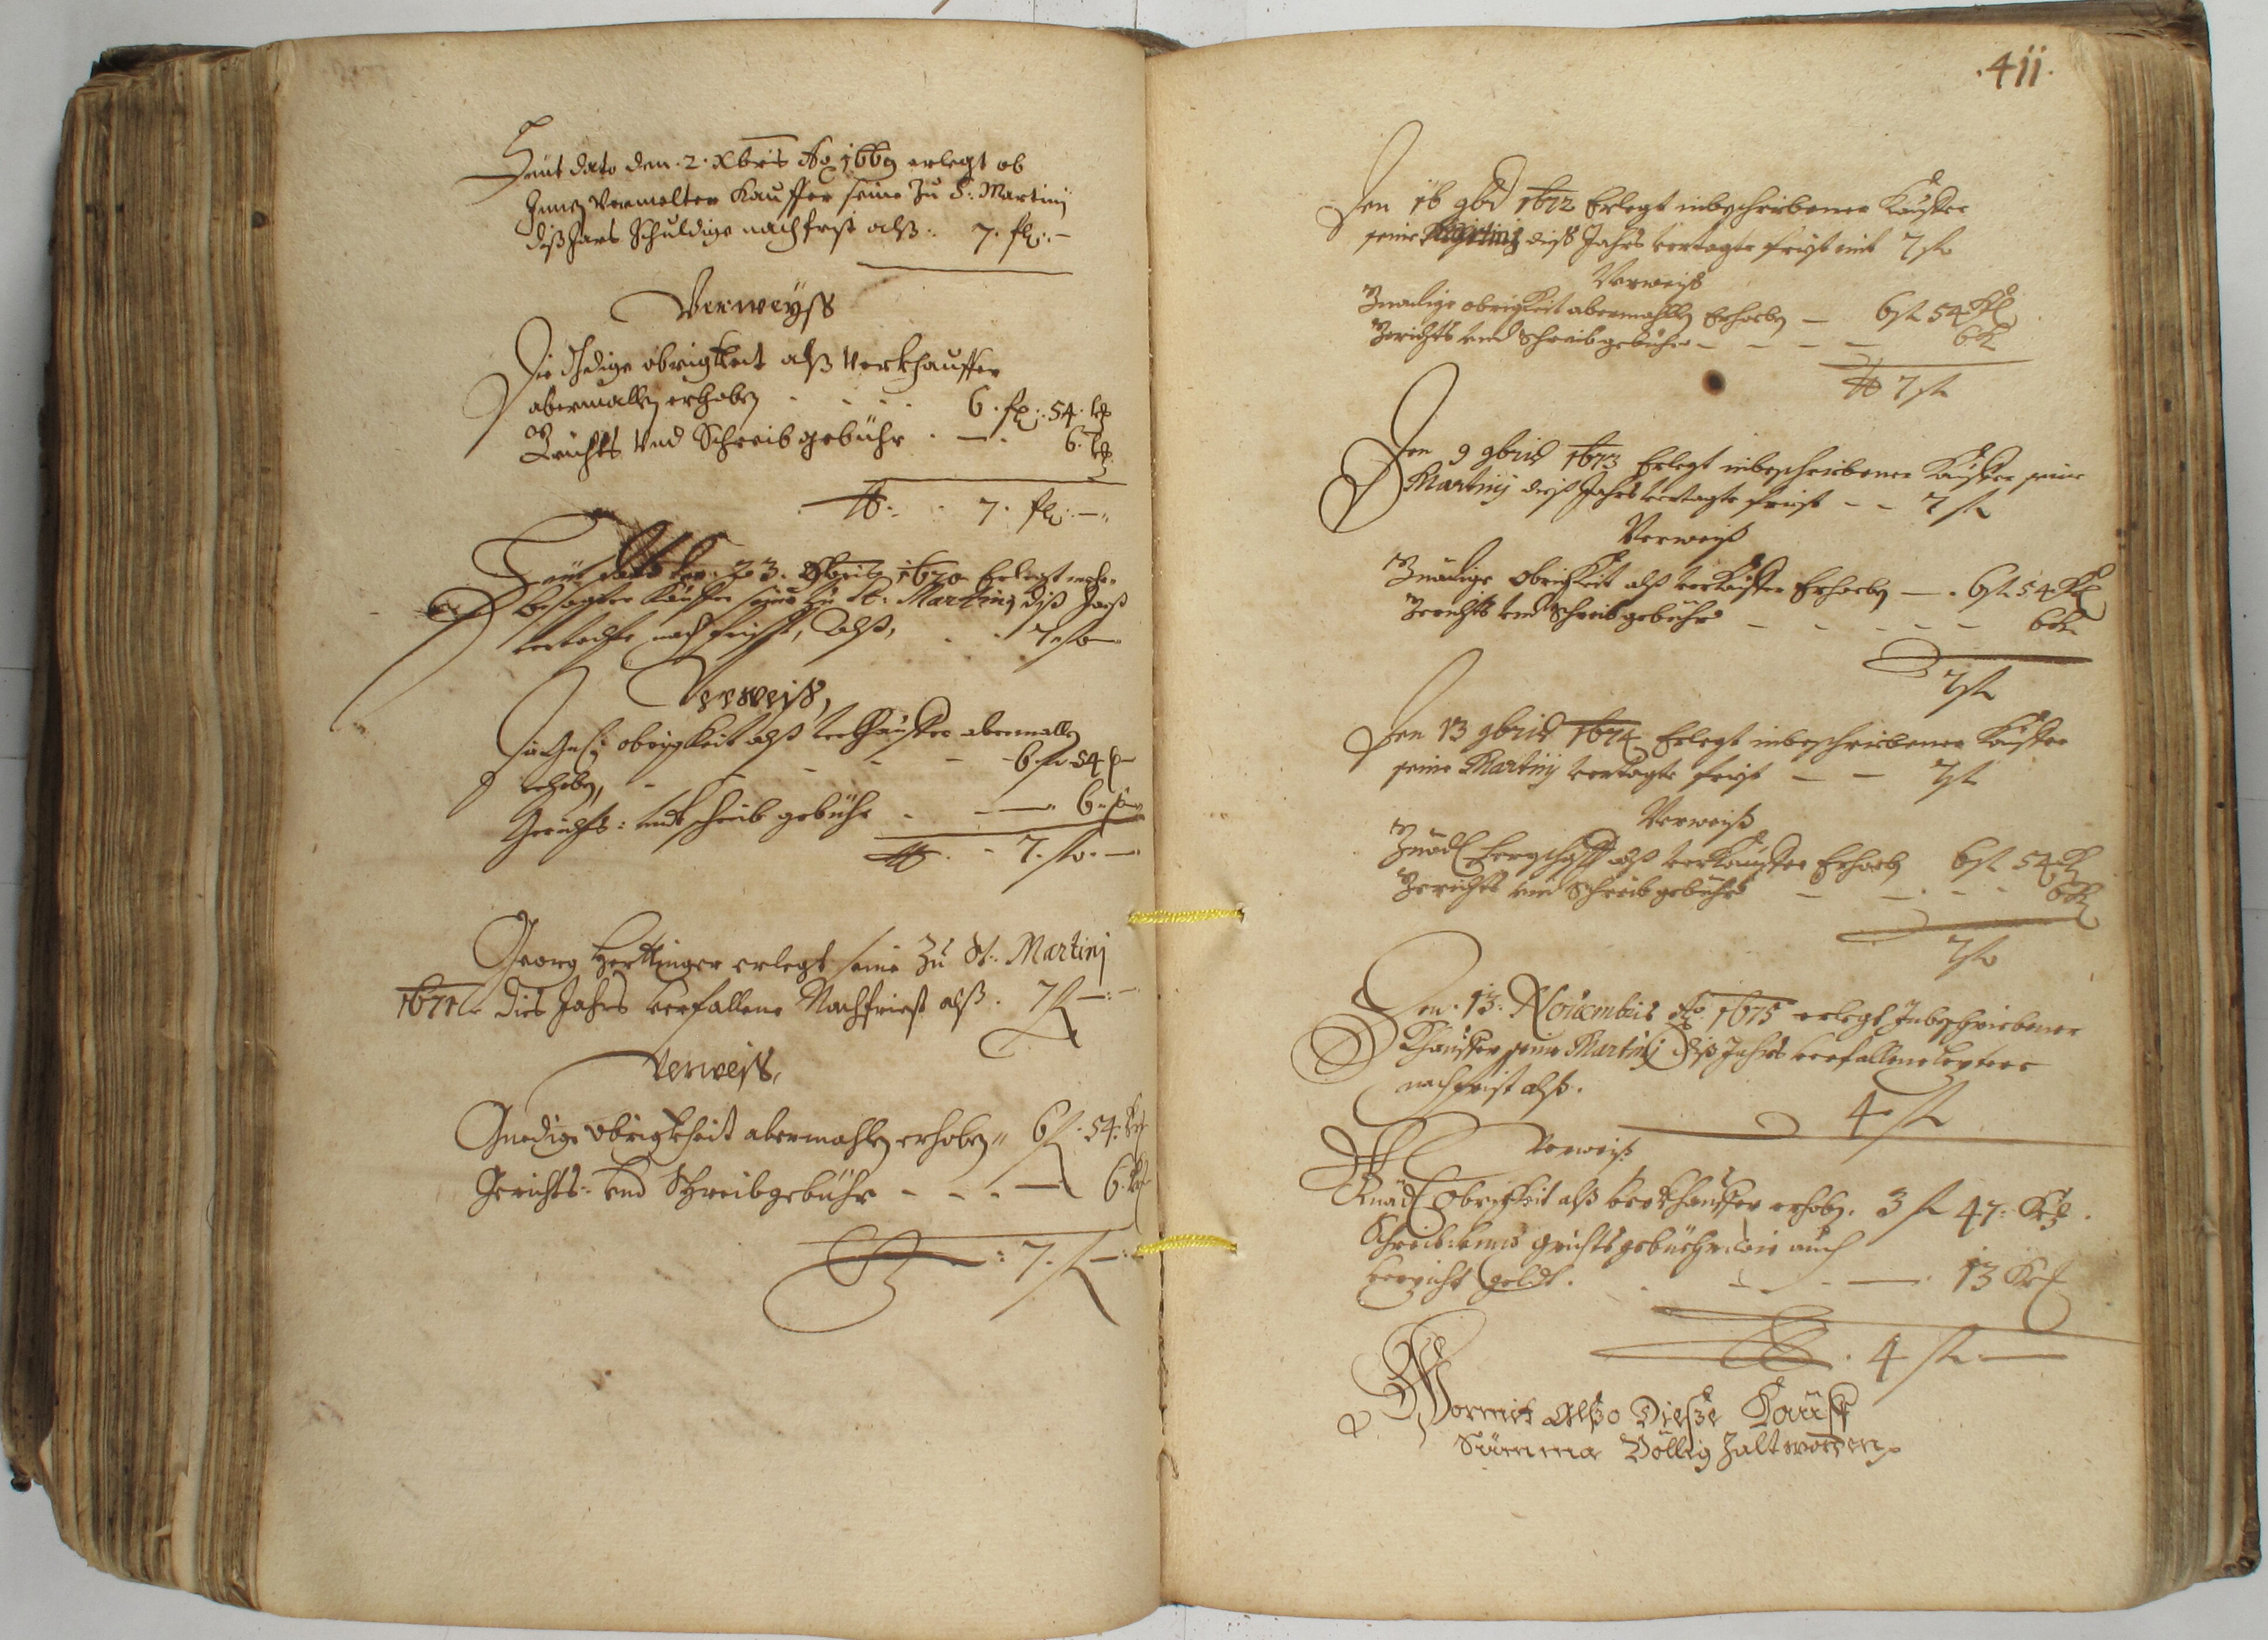 Heüt dato den .2. Xbris Ao 1669 erlegt ob
Innen Vermelter Kauffer seine zu S: Martinÿ
diß Jars Schuldige nachfrist alß: 7. fl: —
Verweÿss
Die Gnedige obrigkheit alß Verkhauffer
abermallen erhoben . . . . 6 . fl: 54. kr
Grichts Vnd Schreib gebühr . — . 6. kr
7. fl: —
23. 1670 Erlegt mehr
besagter Kauffer seine zu St: Martinÿ diß Jars
vertagte nachfrisst, alß, . . 7. fl —
Verweiß,
obrigkeit alß verkhauffer abermallen
erhoben, - - - - 6 fl 54 k
Gerichts: vndt schreib gebühr . — 6 k
. . 7. fl. —
Georg Herttinger erlegt seine zu St. Martinj
1671 dies Jahrs verfallene Nachfriest alß . 7 fl —
Verweiß,
Gnedige obrigkheit abermahlen erhoben 6 fl. 54. kr
Gerichts: vnd Schreibgebühr - - . — 6. kr
: 7. fl —
.411.
Den 16 9br 1672 Erlegt inbeschribener Kauffer
seine Martinj diß Jahrs vertagte frist mit 7 fl
Verweiß
Gnedige obrigkeit abermahlen Erhoben — 6 fl 54 Kr
Gerichts vnd Schreibgebühr - - - - 6 Kr
7 fl
Den 9 9bris 1673 Erlegt inbeschribener Kauffer seine
Martinÿ diß Jahrs vertagte frist - - 7 fl
Verweiß
Gnädige Obrigkeit alß verkauffer Erhoben — . 6 fl 54 Kr
Gerichts vnd Schreibgebühr - - - - - 6 Kr
7 fl
Den 13 9bris 1674 Erlegt inbeschribener Kauffer
seine Martinj vertagte frist — — 7 fl
Verweiß
Gnäd Herrschafft alß verkauffer Erhoben 6 fl 54 Kr
Gerichts vnd Schreibgebühr - - . - - 6 Kr
7 fl
Den. 13. Nouembris Ao. 1675 erlegt Inbeschribener
Khauffer seine Martinj diß Jahrs verfallene leztere
nachfrist alß.
4 fl
Verweiß
Gnäd Obrigkeit alß verkhauffer erhoben. 3 fl 47. Kr.
Schreib: vnnd grichtsgebüehr wie auch
geldt . . - - . — . 13 Kr
. 4 fl. —
Wormit Allßo Dieße Kauff
Summa Völlig Zalt worden